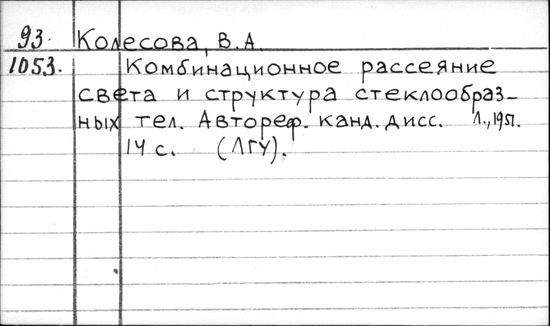 93. Колесова, В.А.
1053. Комбинационное рассеяние
света и структура стеклообраз-
ных тел. Автореф. канд. дисс. Л.,
14 с. (ЛГУ).